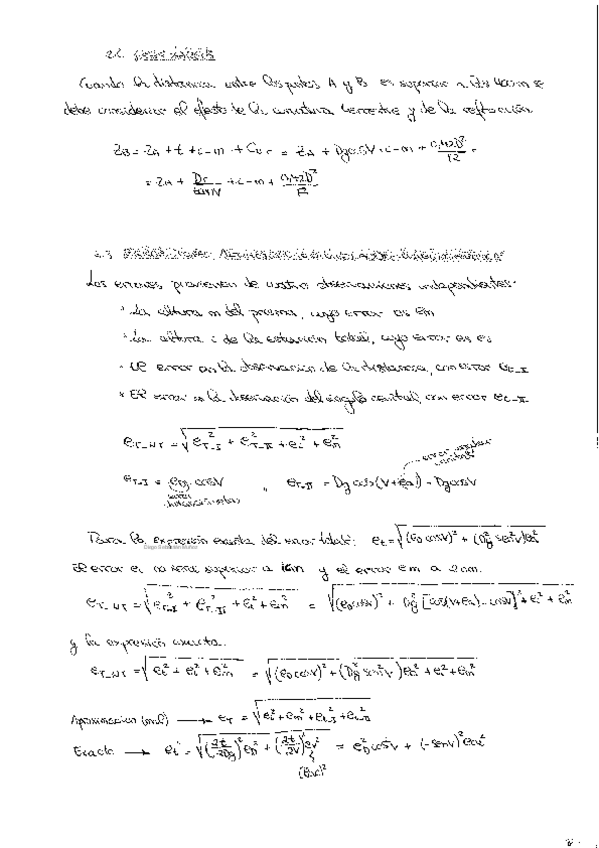 Cuando la distancia entre los puntos A y B es superior a los 400m se
debe considerar el efecto de la curvatura terrestre y de la refracción.
Z_B = Z_A + t + i - m + C_{ur} = Z_A + Dg cosV + i - m + 0,42D²/R =
= Z_A + Dr/tanV + i - m + 0,42D²/R
2.3
Los errores provienen de cuatro observaciones independientes:
· La altura m del prisma, cuyo error es em
· La altura i de la estación total, cuyo error es ei
· El error en la observación de la distancia, con error e_{t-I}
· El error en la observación del ángulo cenital, con error e_{t-II}
e_{T-NT} = √(e_{T-I}² + e_{T-II}² + e_i² + e_m²)
e_{T-I} = e_{Dg} · cosV , e_{T-II} = Dg cos(V+ea) - Dg cosV
error angular
Para la expresión exacta del error total t: e_t = √((e_D cosV)² + (Dg senV)² ea²
Diego Sebastián Muñoz
El error ei no será superior a 1cm y el error em a 2cm.
e_{T-NT} = √(e_{T-I}² + e_{T-II}² + e_i² + e_m²) = √((e_D cosV)² + Dg² [cos(V+ea) - cosV]² + e_i² + e_m²
y la expresión exacta.
e_{T-NT} = √(e_t² + e_i² + e_m²) = √((e_D cosV)² + (Dg senV)² ea² + e_i² + e_m²
Aproximación (mal) → e_T = √(e_i² + e_m² + e_{t-I}² + e_{t-II}²
Exacto → e_t² = √((∂t/∂Dg)² e_D² + (∂t/∂V)² e_V² = e_D² cos²V + (-senV)² ea²